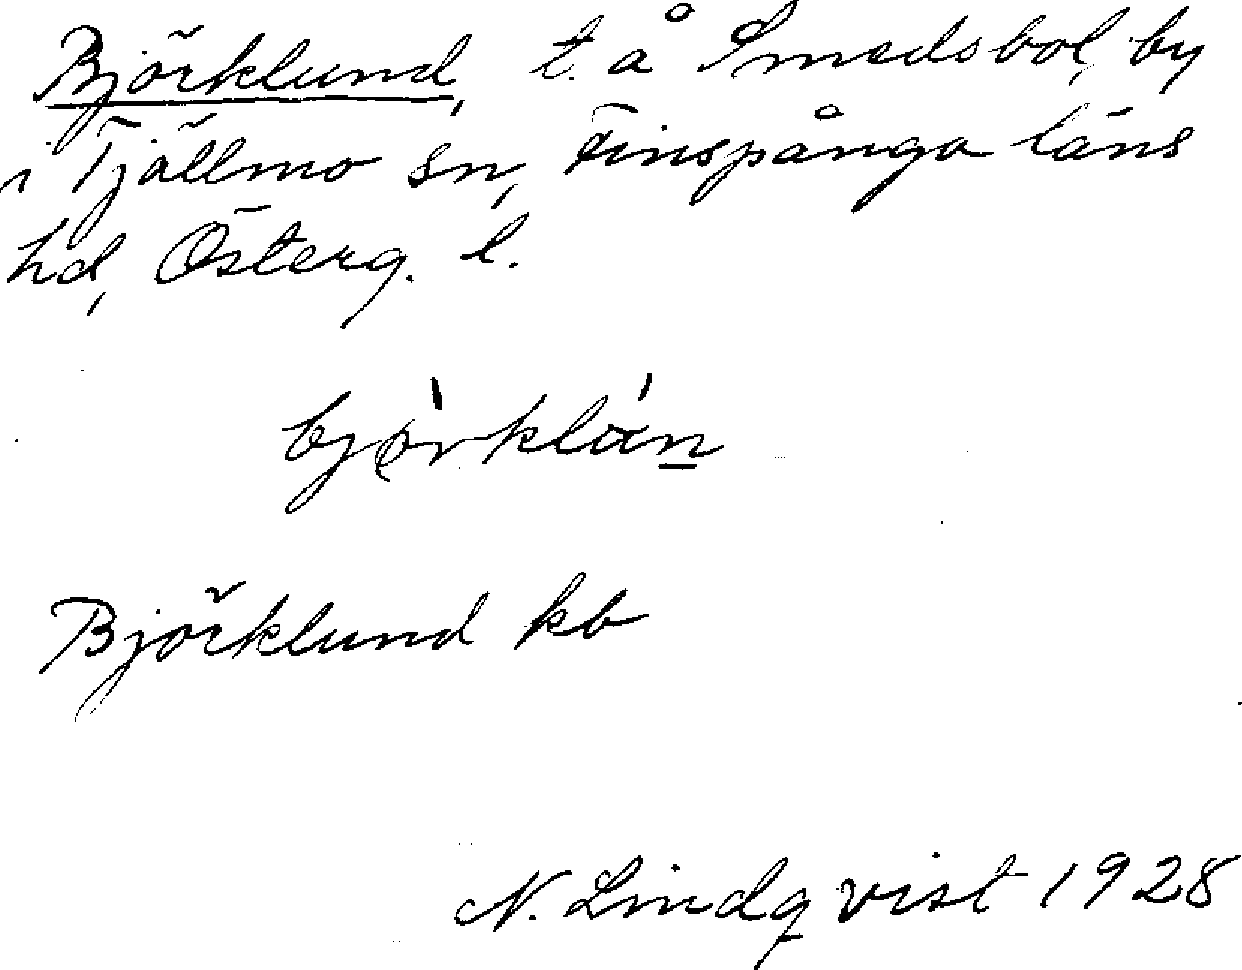 Björklund, t. å Smedsbol, by
i Tjällmo sn, Finspånga läns
hd, Österg. l.
Björklund kb
N. Lindqvist 1928